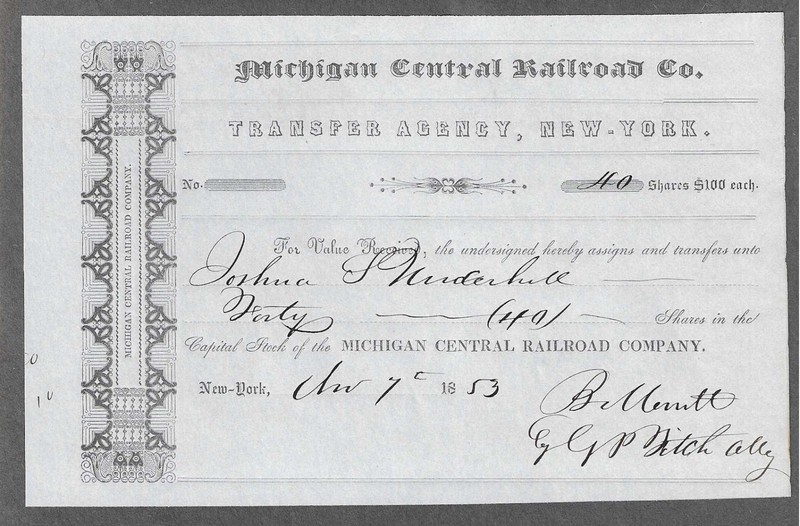 Michigan Central Railroad Co.
TRANSFER AGENCY, NEW-YORK.
No. 40 Shares $100 each.
For Value Received, the undersigned hereby assigns and transfers unto
Joshua S Underhill
Forty (40) Shares in the
Capital Stock of the MICHIGAN CENTRAL RAILROAD COMPANY.
New-York, 7 1853
B Merritt
By G P Fitch Atty
MICHIGAN CENTRAL RAILROAD COMPANY.